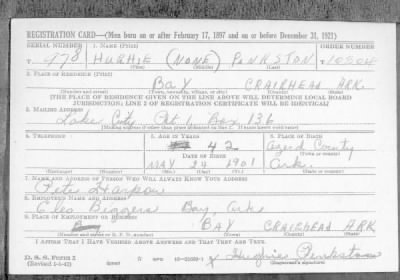 REGISTRATION CARD—(Men born on or after February 17, 1897 and on or before December 31, 1921)
SERIAL NUMBER 1. NAME (Print) ORDER NUMBER
T 978 HUGHIE (NONE) PENKSTON 10504
(First) (Middle) (Last)
2. PLACE OF RESIDENCE (Print)
BAY CRAIGHEAD ARK
(Number and street) (Town, township, village, or city) (County) (State)
[THE PLACE OF RESIDENCE GIVEN ON THE LINE ABOVE WILL DETERMINE LOCAL BOARD
JURISDICTION; LINE 2 OF REGISTRATION CERTIFICATE WILL BE IDENTICAL]
3. MAILING ADDRESS
Lake City Rt 1 Box 136
(Mailing address if other than place indicated on line 2. If same insert word same)
4. TELEPHONE 5. AGE IN YEARS 6. PLACE OF BIRTH
42
DATE OF BIRTH County
MAY 24 1901 Ark
(Mo.) (Day) (Yr.)
7. NAME AND ADDRESS OF PERSON WHO WILL ALWAYS KNOW YOUR ADDRESS
Pete
8. EMPLOYER'S NAME AND ADDRESS
Cleo Biggers Bay, Ark
9. PLACE OF EMPLOYMENT OR BUSINESS
BAY CRAIGHEAD ARK
(Number and street or R. F. D. number) (Town) (County) (State)
I AFFIRM THAT I HAVE VERIFIED ABOVE ANSWERS AND THAT THEY ARE TRUE.
D. S. S. Form 1
(Revised 1-1-42) GPO 16—21630-1 Hughie Penkston
(Registrant's signature)